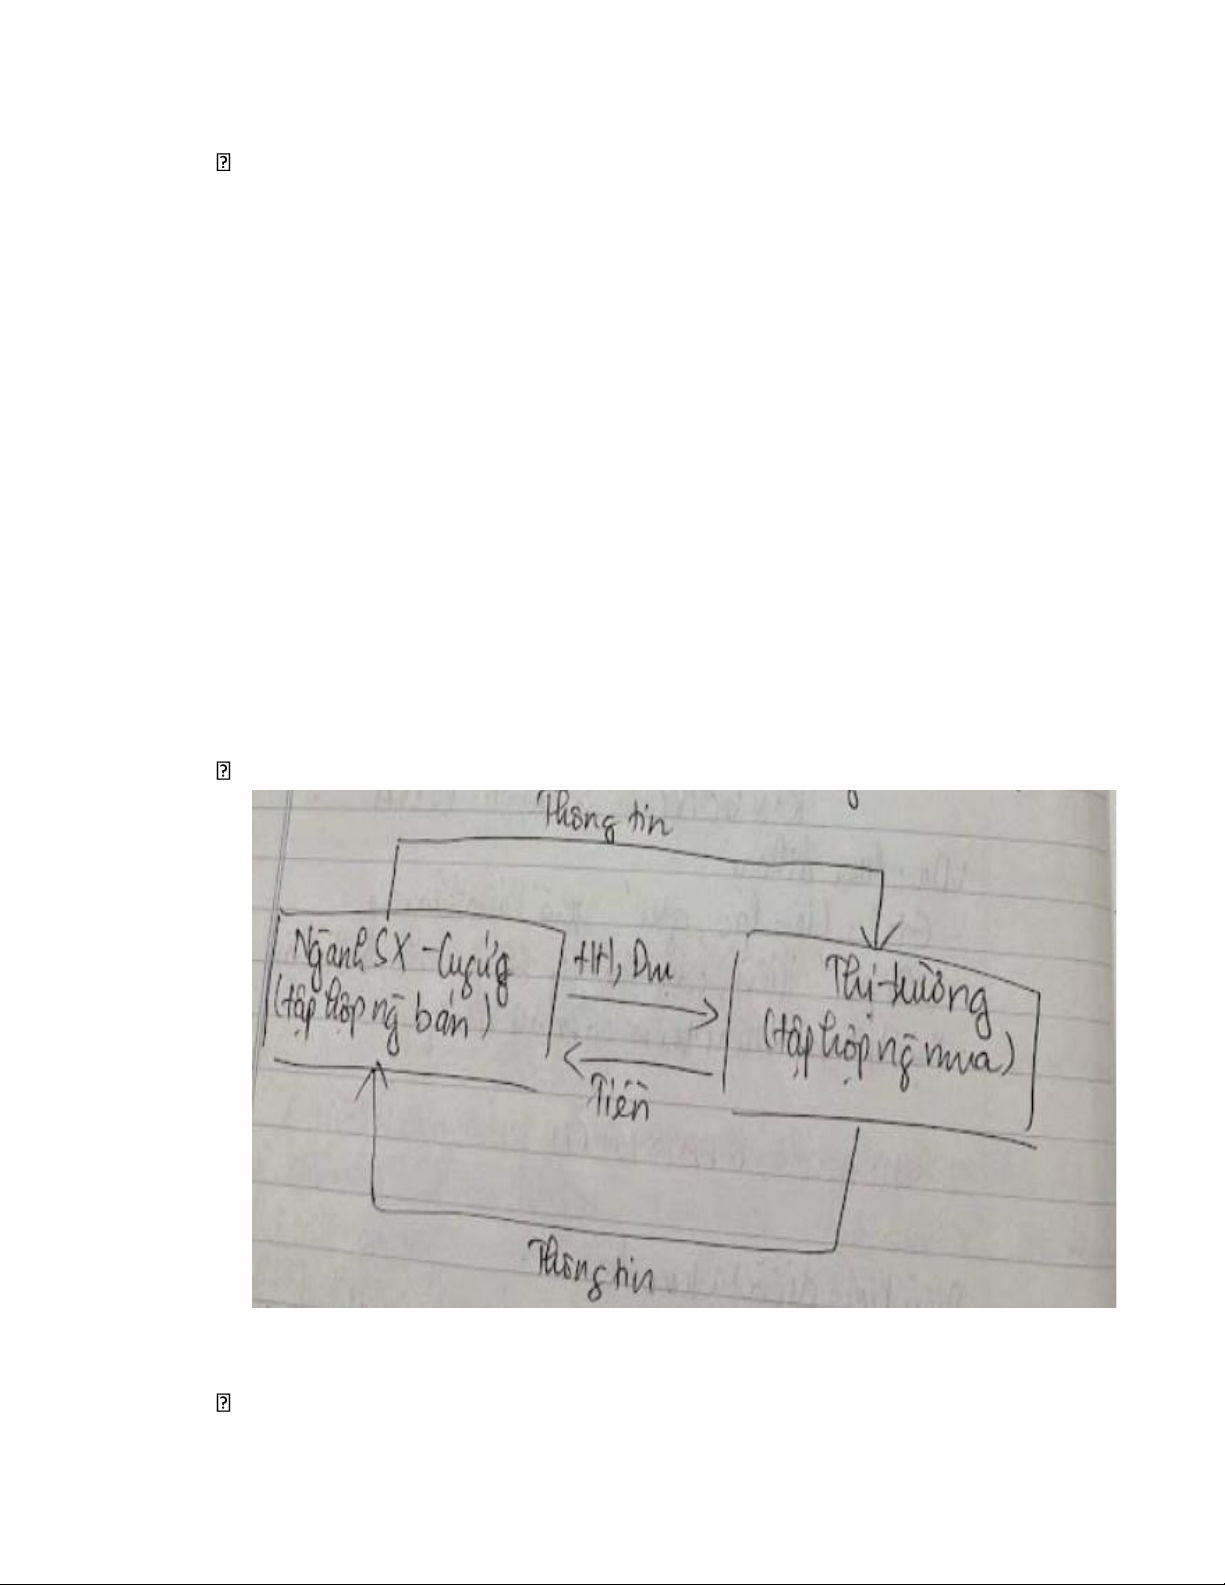 Thông tin
Ngành SX - Cung ứng
(tập hợp ng bán)
HH, DVụ
Thị trường
(tập hợp ng mua)
Tiền
Thông tin